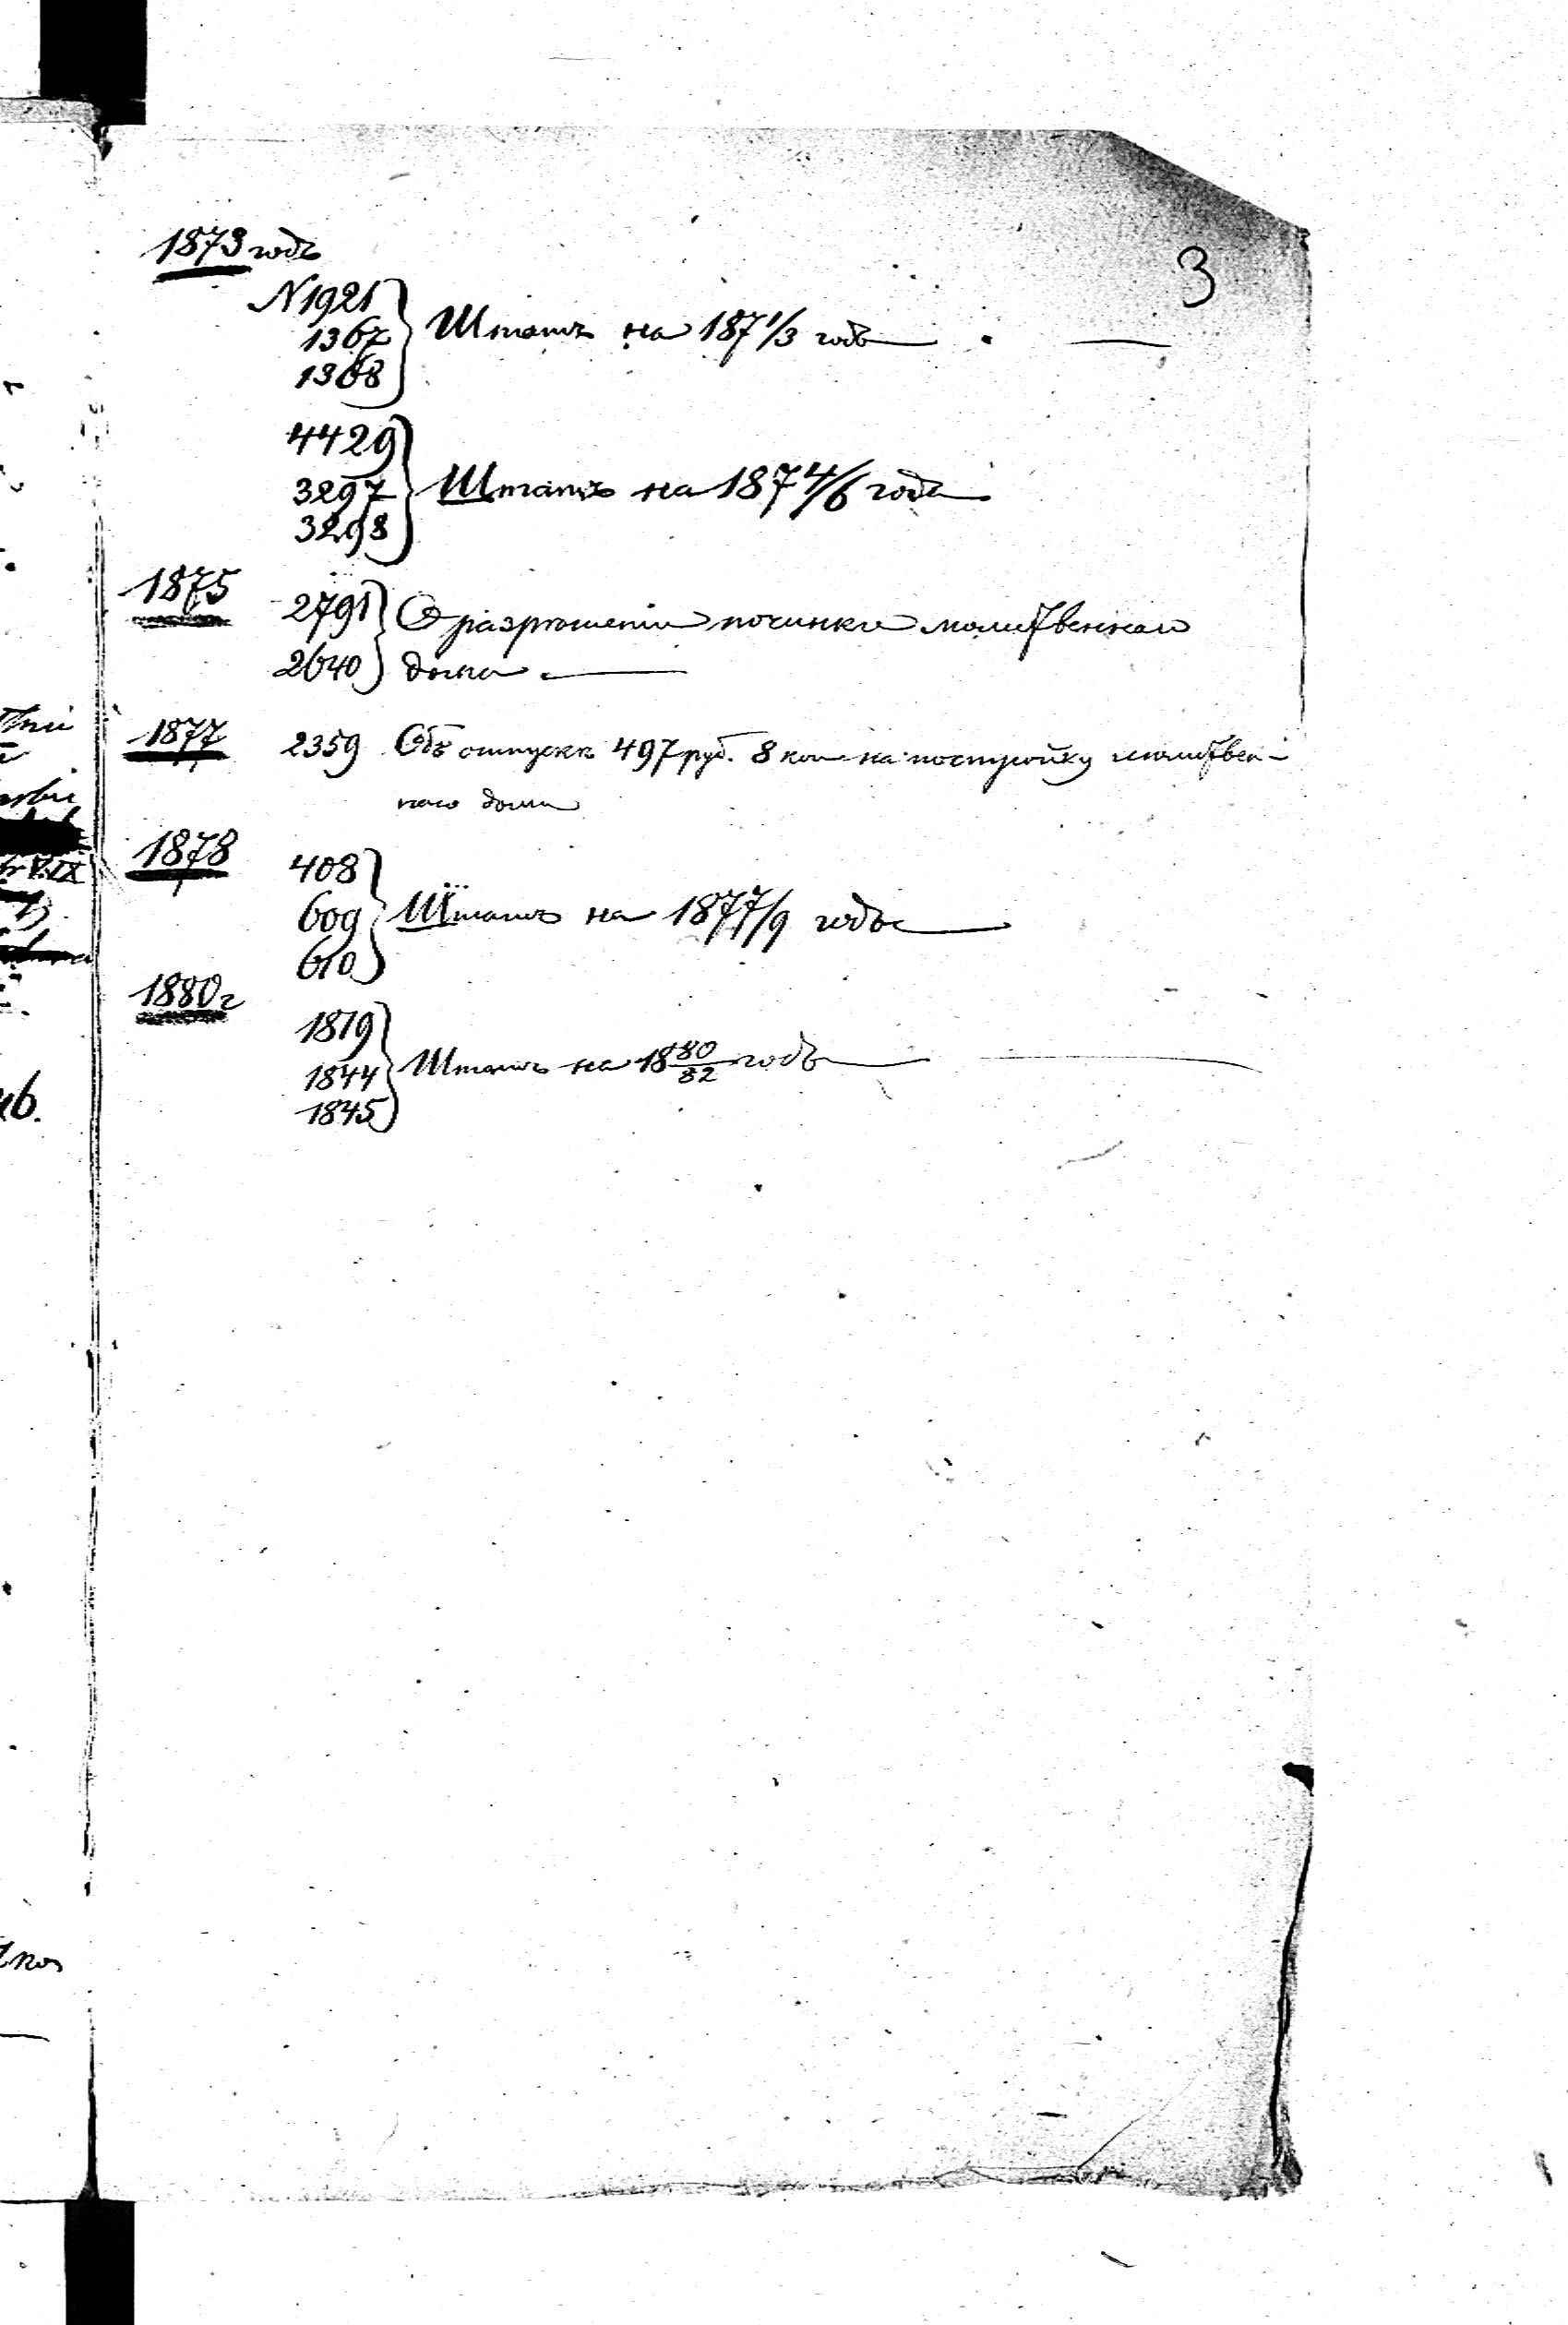 3
1873 годъ
N 1921
1367 Штатъ на 187 1/3 годъ
1368
4429
3297 Штатъ на 187 4/6 годъ
3298
1875 2791 О разрѣшеніи починки молитвеннаго
2640 дома.
1877 2359 Объ отпускѣ 497 руб. 8 коп на постройку молитвен-
наго дома
1878 408
609 Штатъ на 187 7/9 годъ
610
1880 г
1819
1844 Штатъ на 18 80/82 годъ
1845